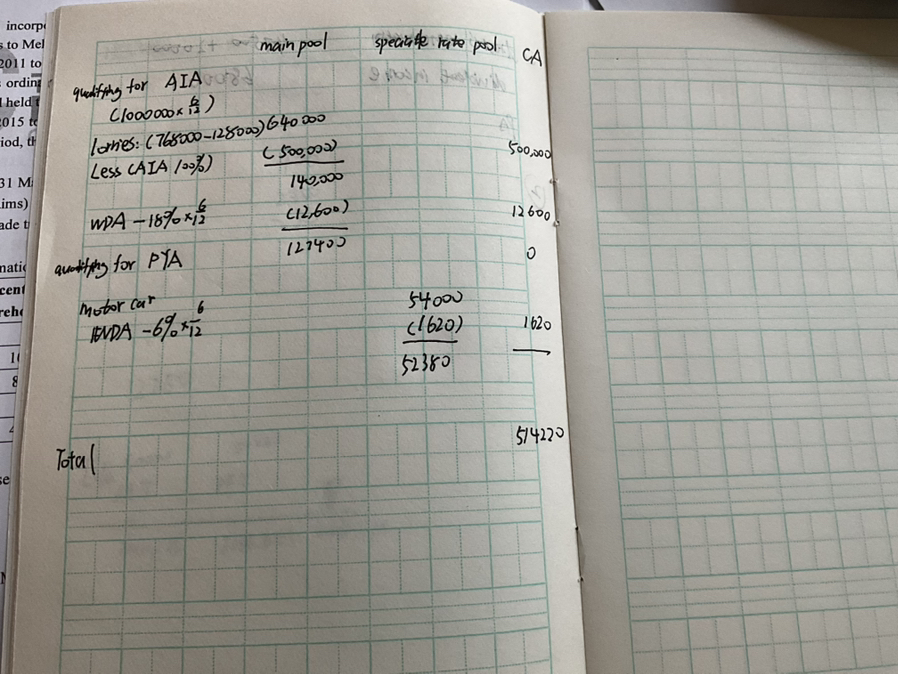 incorp
s to Mel
2011 to
s ordin
l held t
2015 te
riod, th
31 M
ims)
ade t
natic
cent
reho
1
8
4
se
main pool special rate pool CA
qualifying for AIA
(1000000 × 6/12)
lorries: (768000-128000) 640000
Less (AIA 100%) (500,000) 500,000
140,000
WDA - 18% × 6/12 (12,600) 12600
127400
qualifying for FYA 0
motor car 54000
WDA - 6% × 6/12 (1620) 1620
52380
Total 514220